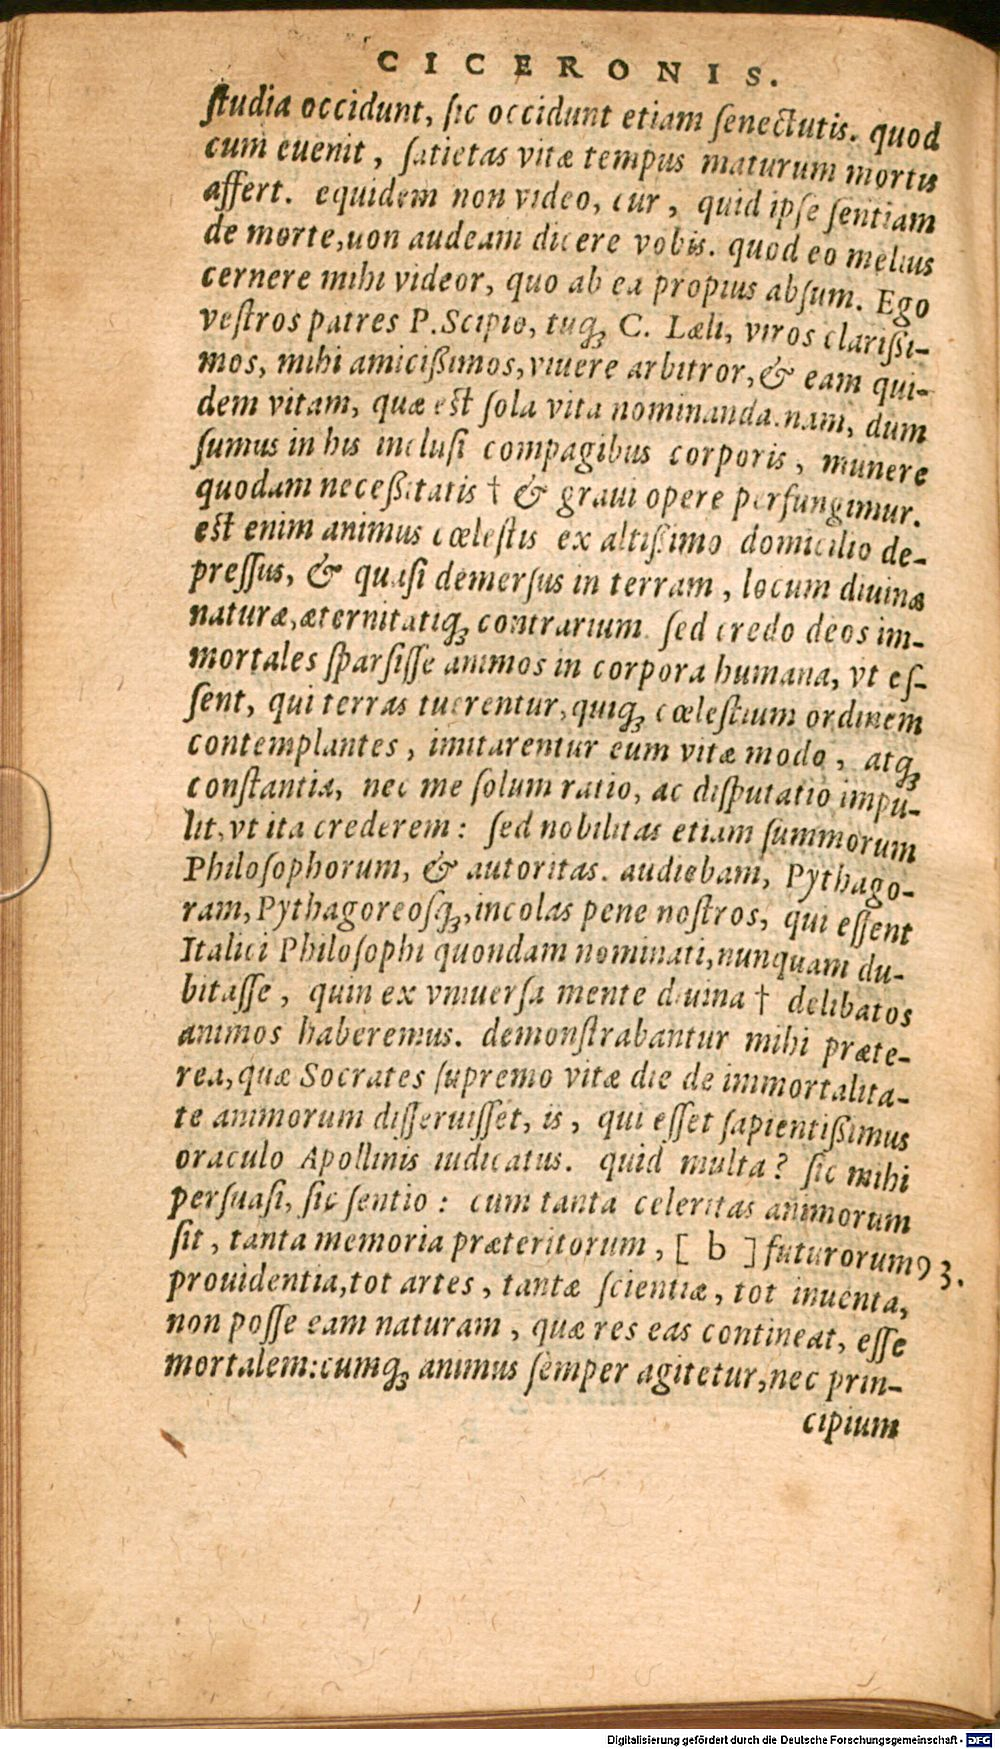 CICERONIS.
ſtudia occidunt, ſic occidunt etiam ſenectutis. quod
cum euenit, ſatietas vitæ tempus maturum mortis
affert. equidem non video, cur, quid ipſe ſentiam
de morte, uon audeam dicere vobis. quod eo melius
cernere mihi videor, quo ab ea propius abſum. Ego
veſtros patres P. Scipio, tuqꝫ C. Læli, viros clariſſi-
mos, mihi amicißimos, viuere arbitror, & eam qui-
dem vitam, quæ eſt ſola vita nominanda. nam, dum
ſumus in his incluſi compagibus corporis, munere
quodam neceßitatis † & graui opere perfungimur.
eſt enim animus cœleſtis ex altißimo domicilio de-
preſſus, & quaſi demerſus in terram, locum diuinæ
naturæ, æternitatiqꝫ contrarium. ſed credo deos im-
mortales ſparſiſſe animos in corpora humana, vt eſ-
ſent, qui terras tuerentur, quiqꝫ cœleſtium ordinem
contemplantes, imitarentur eum vitæ modo, atqꝫ
conſtantia, nec me ſolum ratio, ac diſputatio impu-
lit, vt ita crederem: ſed nobilitas etiam ſummorum
Philoſophorum, & autoritas. audiebam, Pythago-
ram, Pythagoreoſqꝫ, incolas pene noſtros, qui eſſent
Italici Philoſophi quondam nominati, nunquam du-
bitaſſe, quin ex vniuerſa mente diuina † delibatos
animos haberemus. demonſtrabantur mihi præte-
rea, quæ Socrates ſupremo vitæ die de immortalita-
te animorum diſſeruiſſet, is, qui eſſet ſapientißimus
oraculo Apollinis iudicatus. quid multa? ſic mihi
perſuaſi, ſic ſentio: cum tanta celeritas animorum
ſit, tanta memoria præteritorum, [ b ] futurorum 93.
prouidentia, tot artes, tantæ ſcientiæ, tot inuenta,
non poſſe eam naturam, quæ res eas contineat, eſſe
mortalem: cumqꝫ animus ſemper agitetur, nec prin-
cipium
Digitalisierung gefördert durch die Deutsche Forschungsgemeinschaft - DFG